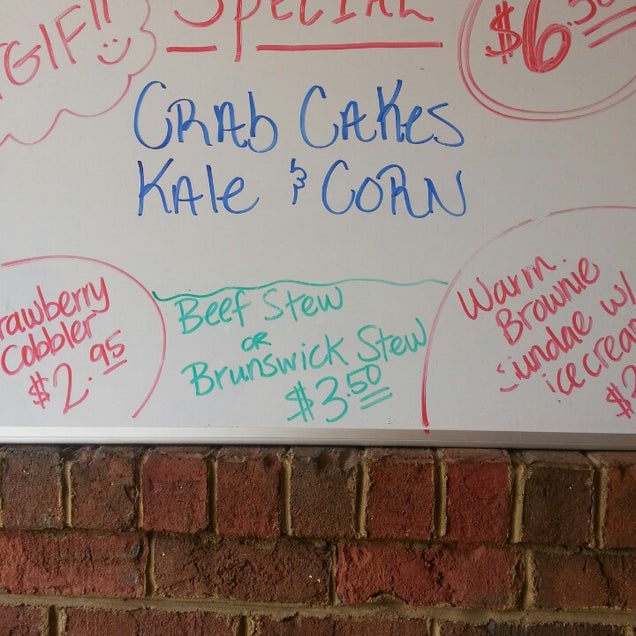 GIF!!
Special
$6.50
CRAb CAKes
KAle & CORN
rawberry
Cobbler
$2.95
Beef Stew
OR
Brunswick Stew
$3.50
Warm
Brownie
Sundae w/
ice crea
$